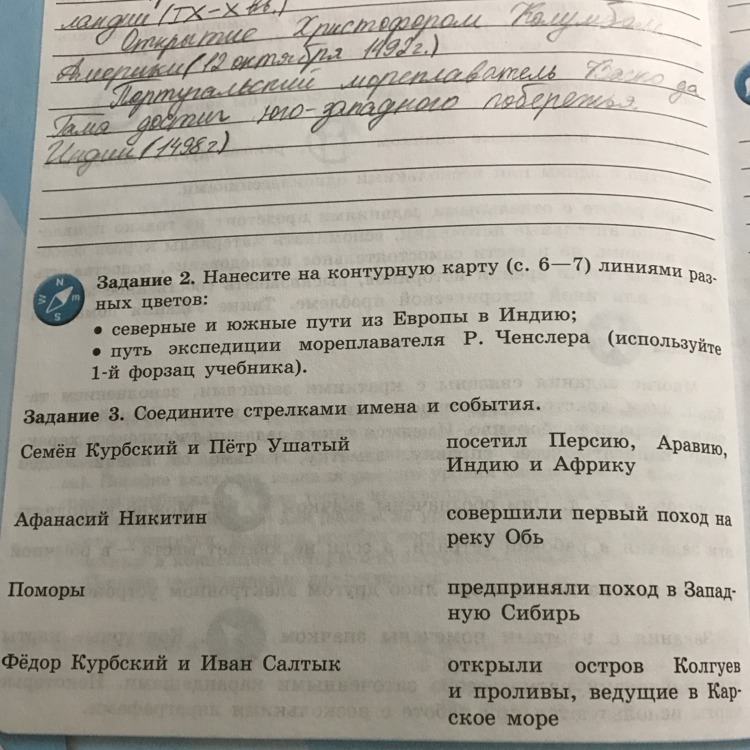 ландии (IX-X вв.)
Открытие Христофором Колумбом
Америки (12 октября 1492г.)
Португальский мореплаватель Васко да
Гама достиг юго-западного побережья
Индии (1498г)
Задание 2. Нанесите на контурную карту (с. 6—7) линиями раз-
ных цветов:
• северные и южные пути из Европы в Индию;
• путь экспедиции мореплавателя Р. Ченслера (используйте
1-й форзац учебника).
N
W
E
S
Задание 3. Соедините стрелками имена и события.
Семён Курбский и Пётр Ушатый
посетил Персию, Аравию,
Индию и Африку
Афанасий Никитин
совершили первый поход на
реку Обь
Поморы
предприняли поход в Запад-
ную Сибирь
Фёдор Курбский и Иван Салтык
открыли остров Колгуев
и проливы, ведущие в Кар-
ское море